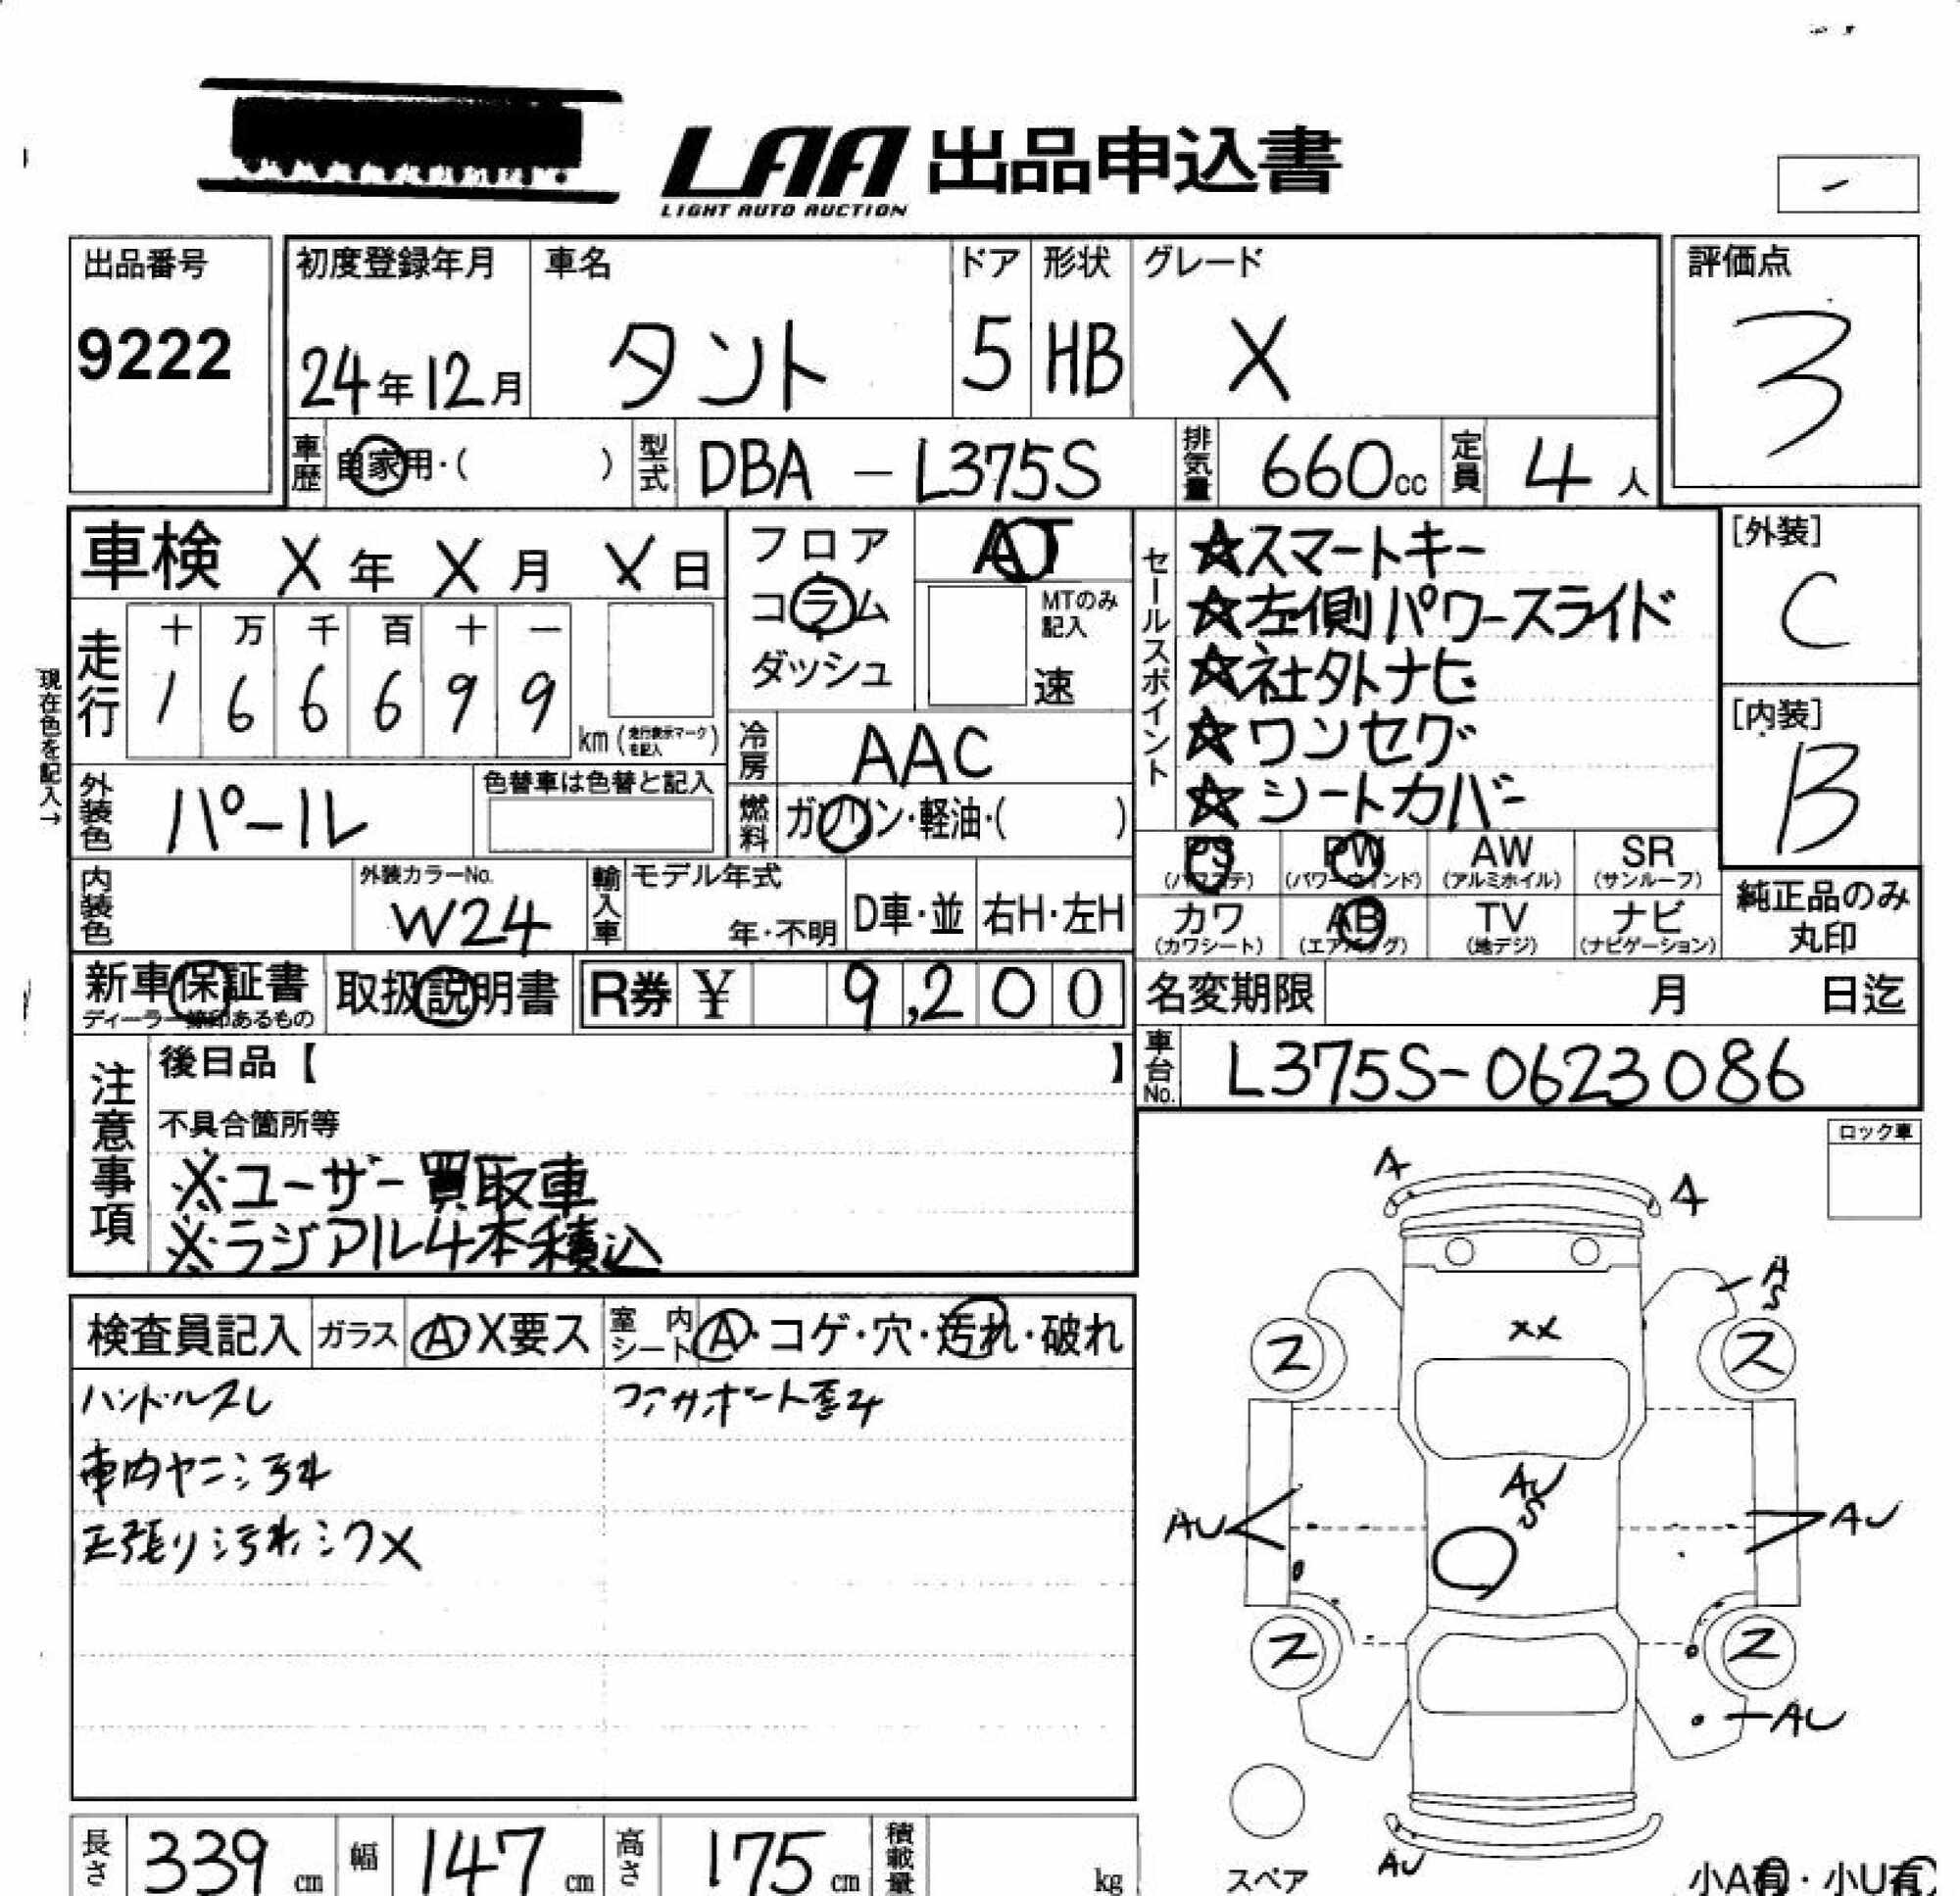 LAA 出品申込書
LIGHT AUTO AUCTION
出品番号
9222
初度登録年月
24年12月
車名
タント
ドア
5
形状
HB
グレード
X
評価点
3
車歴
自家用・( )
型式
DBA - L375S
排気量
660cc
定員
4人
車検 X年X月X日
フロア
コラム
ダッシュ
AT
MTのみ記入
速
セールスポイント
☆スマートキー
☆左側パワースライド
☆社外ナビ
☆ワンセグ
☆シートカバー
[外装]
C
[内装]
B
現在色を記入→
走行
十 万 千 百 十 一
1 6 6 6 9 9
km (走行表示マークを記入)
冷房
AAC
外装色
パール
色替車は色替と記入
燃料
ガソリン・軽油・( )
PS (パワステ)
PW (パワーウィンド)
AW (アルミホイル)
SR (サンルーフ)
カワ (カワシート)
AB (エアバッグ)
TV (地デジ)
ナビ (ナビゲーション)
純正品のみ
丸印
内装色
外装カラーNo.
W24
輸入車
モデル年式
年・不明
D車・並
右H・左H
新車保証書
ディーラー捺印あるもの
取扱説明書
R券 ¥ 9,200
名変期限 月 日迄
車台No.
L375S-0623086
注意事項
後日品【 】
不具合箇所等
※ユーザー買取車
※ラジアル4本積込
ロック車
検査員記入
ガラス
A X要ス
室内シート
A・コゲ・穴・汚れ・破れ
ハンドルスレ
車内ヤニ汚れ
天張り汚れシワX
A
A
A
S
XX
ス
ス
AU
S
AU
AU
ス
ス
AU
AU
スペア
小A有・小U有
長さ
339cm
幅
147cm
高さ
175cm
積載量
kg